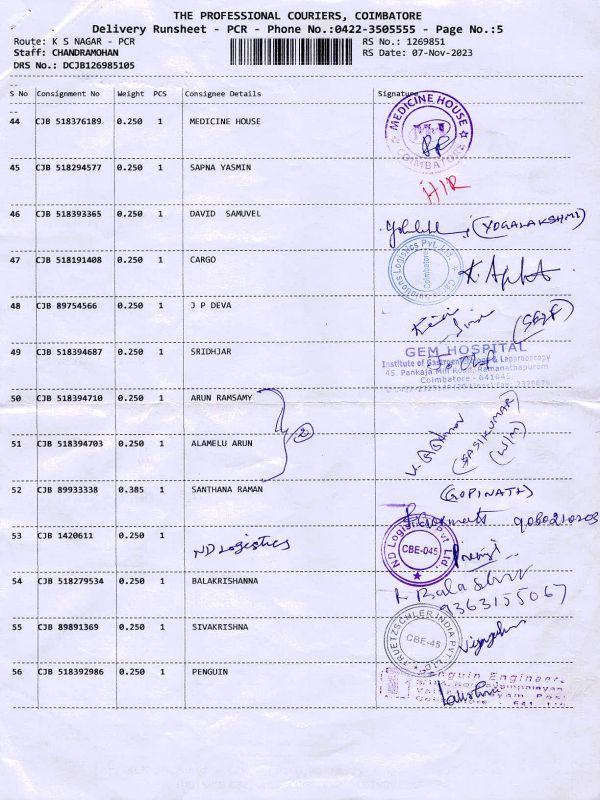 THE PROFESSIONAL COURIERS, COIMBATORE
Delivery Runsheet - PCR - Phone No.:0422-3505555 - Page No.:5
Route: K S NAGAR - PCR RS No.: 1269851
Staff: CHANDRAMOHAN RS Date: 07-Nov-2023
DRS No.: DCJB126985105
S No Consignment No Weight PCS Consignee Details Signature
44 CJB 518376189 0.250 1 MEDICINE HOUSE MEDICINE HOUSE COIMBATORE
45 CJB 518294577 0.250 1 SAPNA YASMIN
46 CJB 518393365 0.250 1 DAVID SAMUVEL (YOGALAKSHMI)
47 CJB 518191408 0.250 1 CARGO Logistics Pvt. Ltd. Coimbatore
48 CJB 89754566 0.250 1 J P DEVA
49 CJB 518394687 0.250 1 SRIDHJAR GEM HOSPITAL
Institute of Gastroenterology & Laparoscopy
45, Pankaja Mill Road, Ramanathapuram
Coimbatore - 641045
50 CJB 518394710 0.250 1 ARUN RAMSAMY
2
51 CJB 518394703 0.250 1 ALAMELU ARUN (SASIKUMAR)
52 CJB 89933338 0.385 1 SANTHANA RAMAN (GOPINATH)
53 CJB 1420611 ND Logistics ND Logistics Pvt Ltd. CBE-045
54 CJB 518279534 0.250 1 BALAKRISHANNA
9363155067
55 CJB 89891369 0.250 1 SIVAKRISHNA TRUETZSCHLER INDIA PVT. LTD CBE-45
56 CJB 518392986 0.250 1 PENGUIN